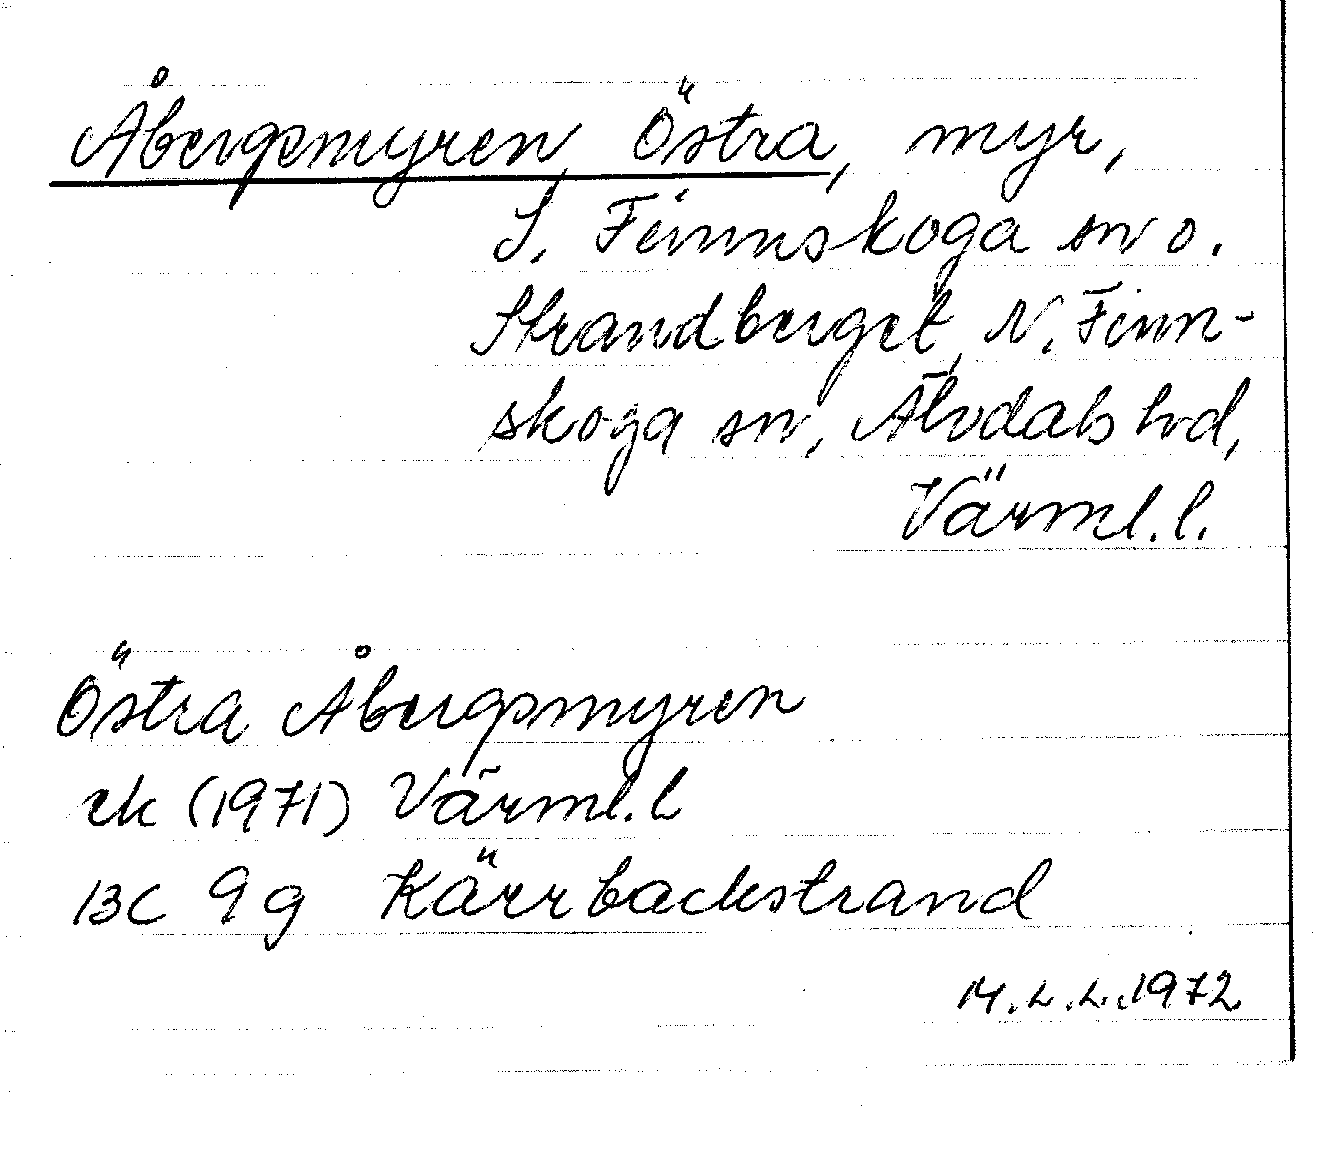 Åbergsmyren, Östra, myr,
S. Finnskoga sn o.
Strandberget, N. Finn-
skoga sn, Älvdals hd,
Värml. l.
Östra Åbergsmyren
ek (1971) Värml. l
13C 9g Kärrbackstrand
M.L.L. 1972